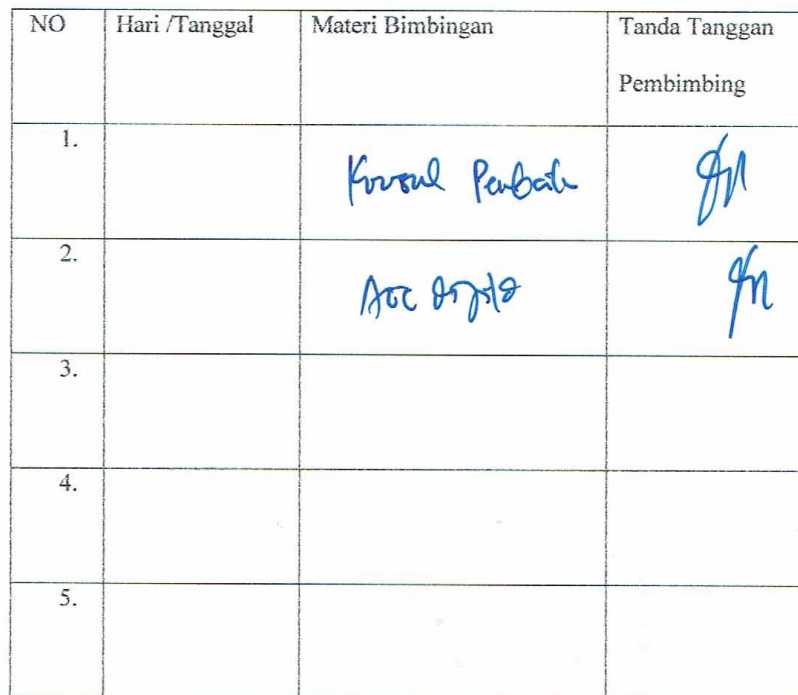 NO Hari /Tanggal Materi Bimbingan Tanda Tanggan
Pembimbing
1.
Konsul
2.
Acc
3.
4.
5.